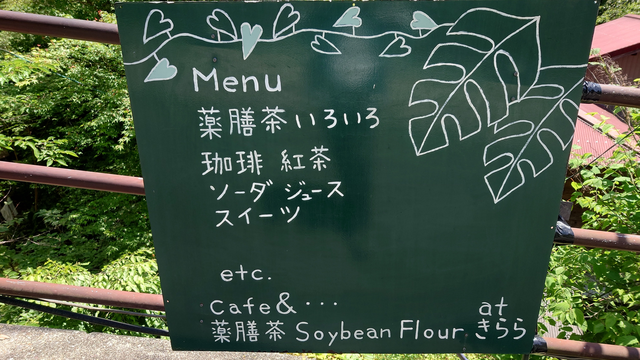 Menu
薬膳茶いろいろ
珈琲 紅茶
ソーダ ジュース
スイーツ
etc.
Cafe& ···
薬膳茶 Soybean Flour at きらら